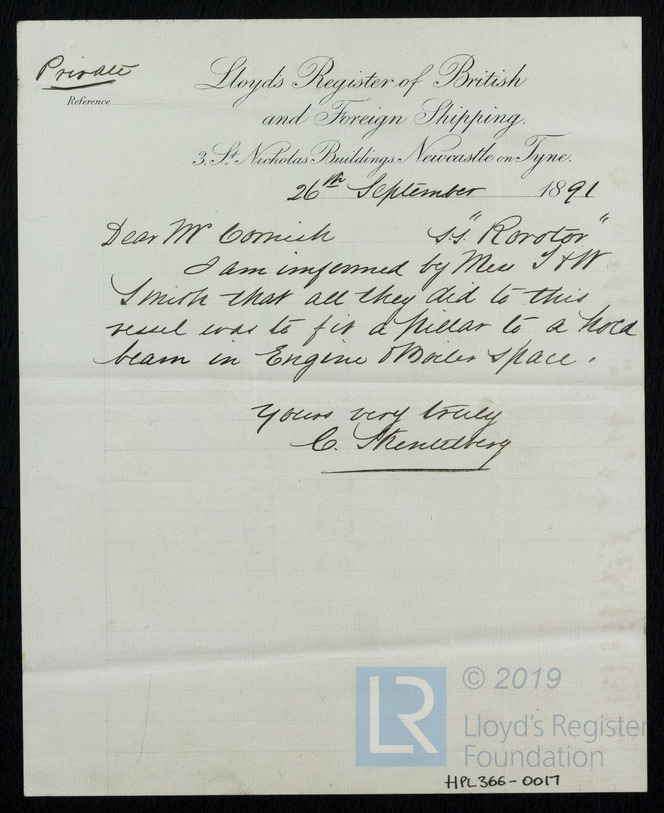 Private
Reference
Lloyd's Register of British
and Foreign Shipping.
3, St. Nicholas Buildings, Newcastle on Tyne.
26th September 1891
Dear Mr Cornish s.s. "Rorotor"
I am informed by Mess T & W
Smith that all they did to this
vessel was to fit a pillar to a hold
beam in Engine & Boiler space.
Yours very truly
C.
LR
© 2019
Lloyd's Register
Foundation
HPL366-0017